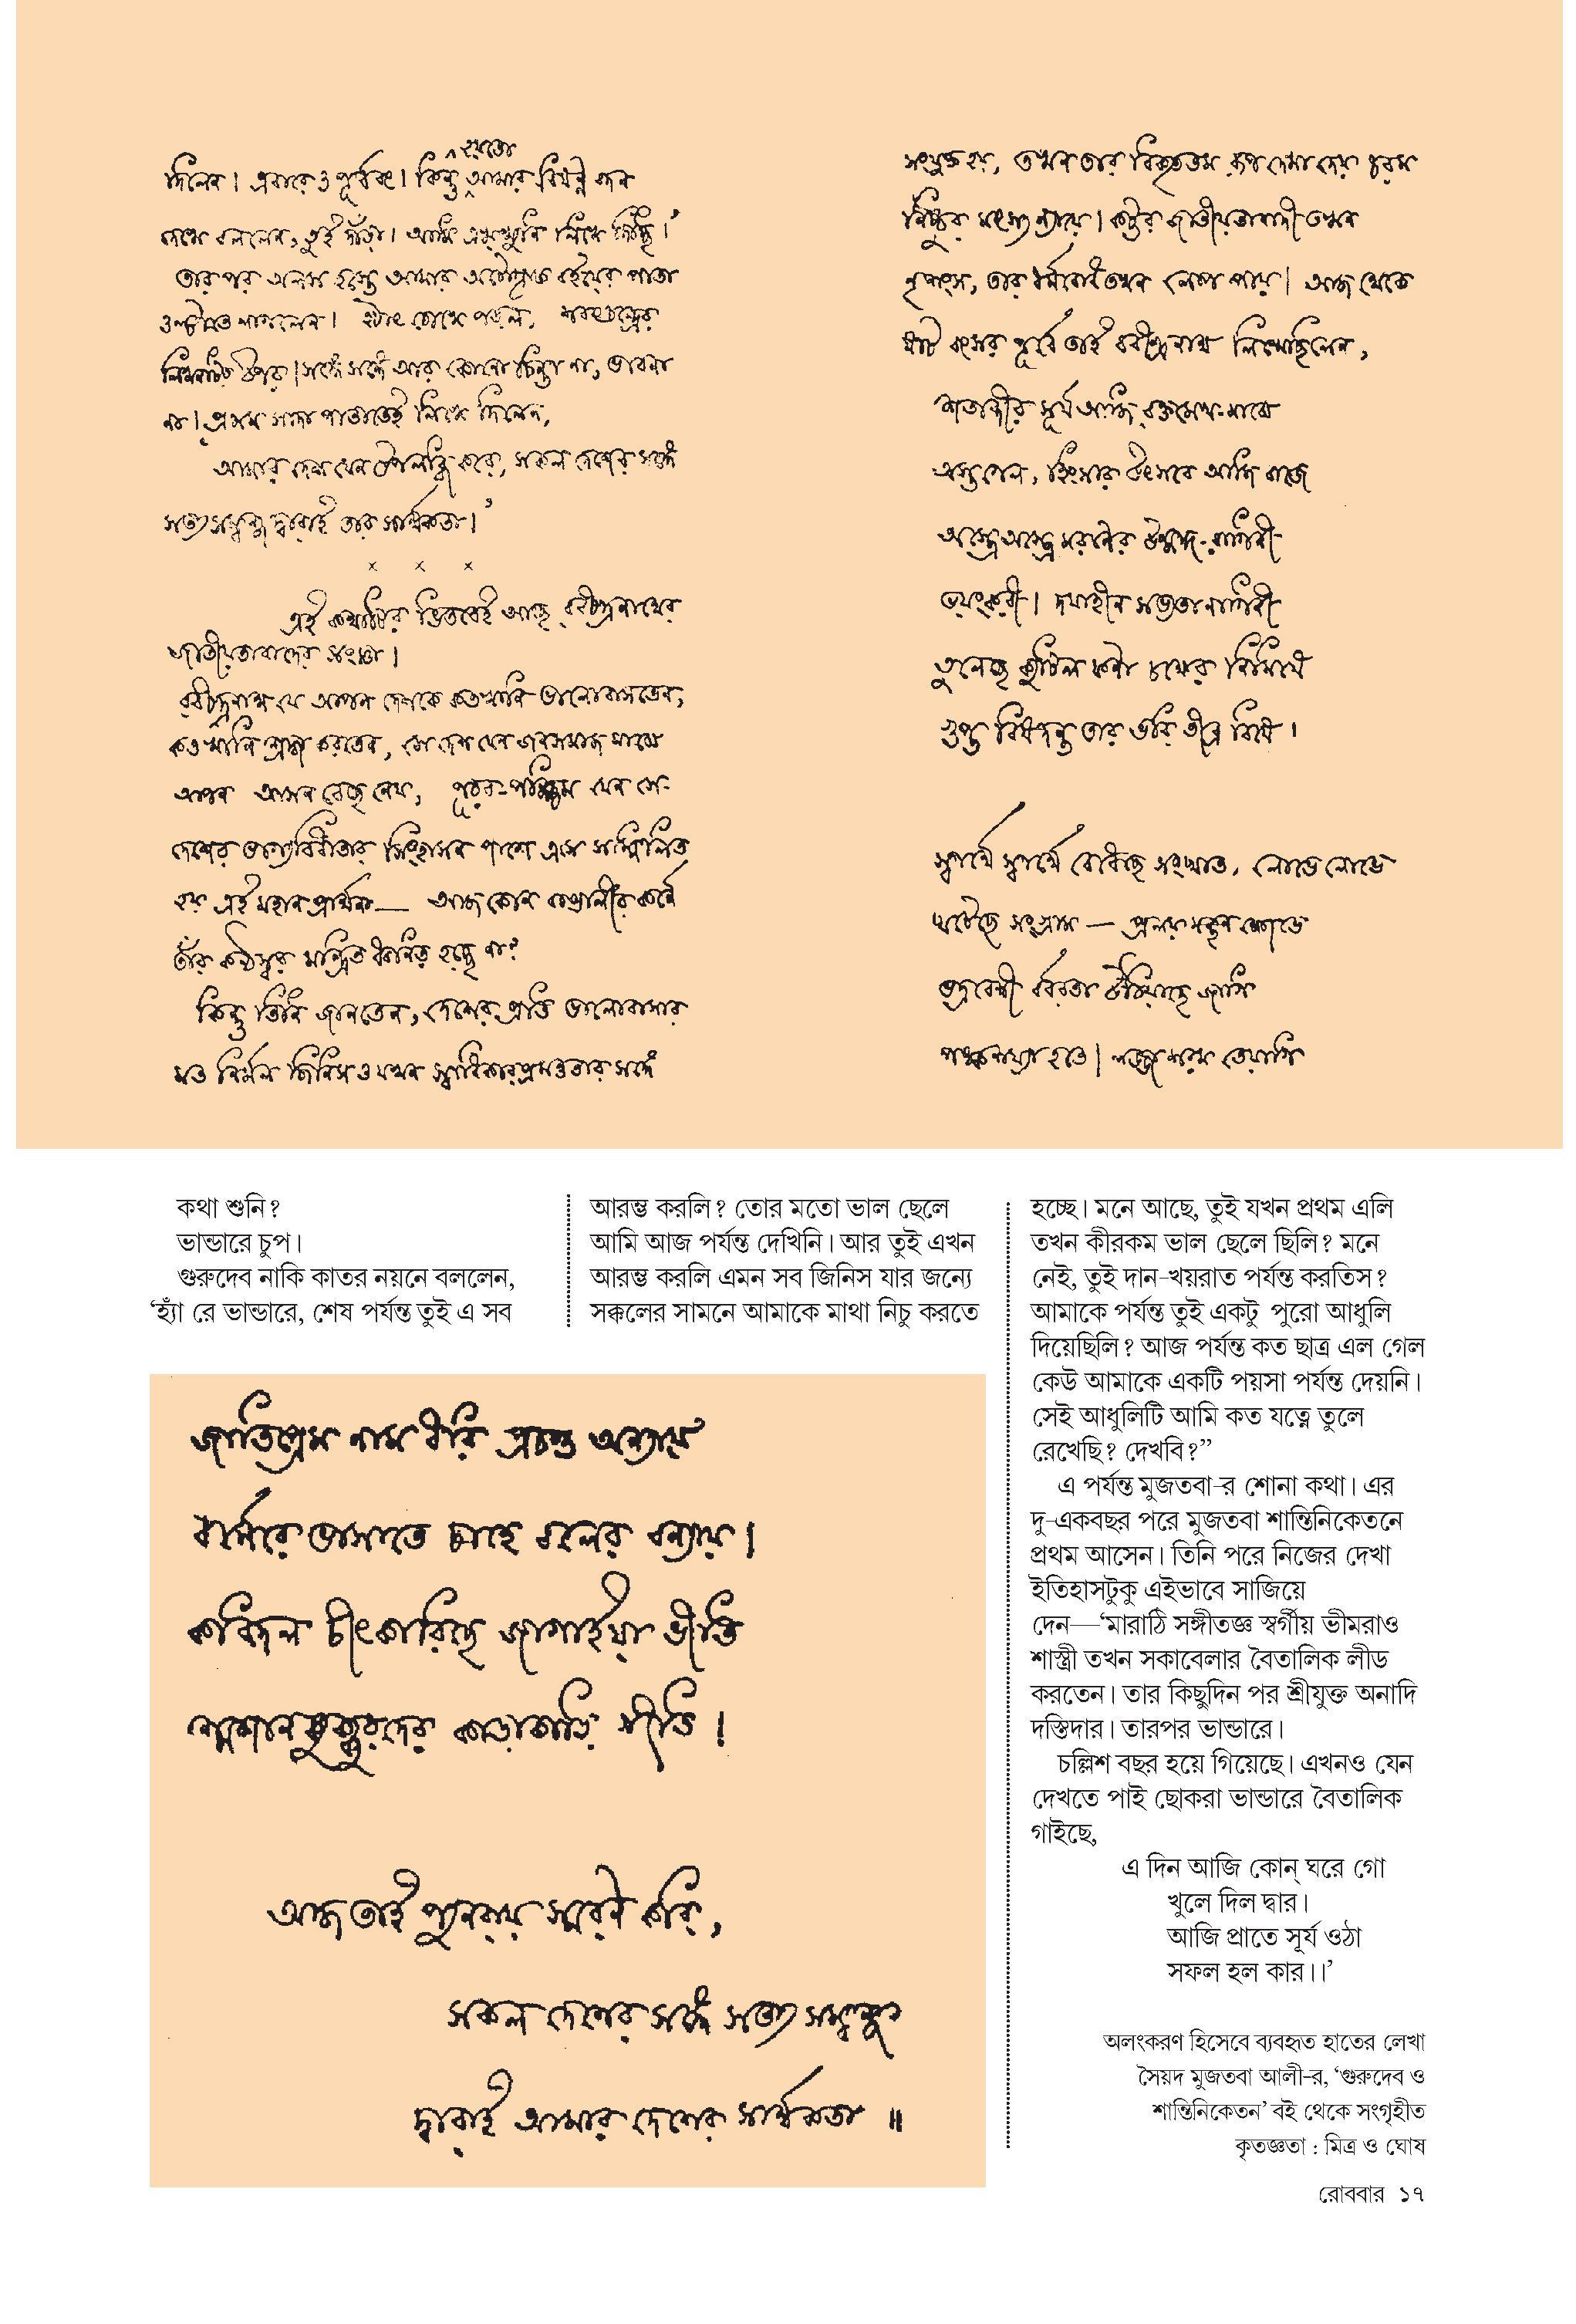 হয়তো
দিলেন। এবারেও পূর্ববৎ। কিন্তু আমার বিষণ্ণ বদন
দেখে বললেন, তুই দাঁড়া। আমি এক্ষুণি লিখে দিচ্ছি।’
তারপর অলস হস্তে আমার অটোগ্রাফ বইয়ের পাতা
ওল্টাতে লাগলেন। হঠাৎ চোখে পড়ল, শরৎচন্দ্রের
লিখনটির উপর। সঙ্গে সঙ্গে আর কোনো চিন্তা না, ভাবনা
না। প্রথম সাদা পাতাতেই লিখে দিলেন,
আমার দেশ যেন উপলব্ধি করে, সকল দেশের সঙ্গে
সত্য সম্বন্ধ দ্বারাই তার সার্থকতা।’
× × ×
এই কথাটির ভিতরেই আছে রবীন্দ্রনাথের
জাতীয়তাবাদের সংজ্ঞা।
রবীন্দ্রনাথ যে আপন দেশকে কতখানি ভালোবাসতেন,
কতখানি শ্রদ্ধা করতেন, সে দেশ যেন জনসমাজ মাঝে
আপন আসন বেছে নেয়, পূরব-পশ্চিম যেন সে-
দেশের ভাগ্যবিধাতার সিংহাসন পাশে এসে সম্মিলিত
হয় এই মহান প্রার্থনা— আজ কোন বাঙালীর কর্ণে
তাঁর কণ্ঠস্বর মন্দ্রিত ধ্বনিত হচ্ছে না?
কিন্তু তিনি জানতেন, দেশের প্রতি ভালোবাসার
মত নির্মল জিনিসও যখন স্বাধিকারপ্রমত্ততার সঙ্গে
সংযুক্ত হয়, তখন তার বিকৃততম রূপ দেখা দেয় চরম
নিষ্ঠুর মৎস্যন্যায়ে। কট্টর জাতীয়তাবাদী তখন
নৃশংস, তার ধর্মবোধ তখন লোপ পায়। আজ থেকে
ষাট বৎসর পূর্বে তাই রবীন্দ্রনাথ লিখেছিলেন,
শতাব্দীর সূর্য আজি রক্তমেঘ-মাঝে
অস্ত গেল, হিংসার উৎসবে আজি বাজে
অস্ত্রে অস্ত্রে মরণের উন্মাদ-রাগিণী
ভয়ংকরী। দয়াহীন সভ্যতানাগিনী
তুলেছে কুটিল ফণা চক্ষের নিমিষে
গুপ্ত বিষদন্ত তার ভরি তীব্র বিষে।
স্বার্থে স্বার্থে বেধেছে সংঘাত, লোভে লোভে
ঘটেছে সংগ্রাম — প্রলয়মন্থনক্ষোভে
ভদ্রবেশী বর্বরতা উঠিয়াছে জাগি
পঙ্কশয্যা হতে। লজ্জা শরম তেয়াগি
কথা শুনি?
ভান্ডারে চুপ।
গুরুদেব নাকি কাতর নয়নে বললেন,
‘হ্যাঁ রে ভান্ডারে, শেষ পর্যন্ত তুই এ সব
আরম্ভ করলি? তোর মতো ভাল ছেলে
আমি আজ পর্যন্ত দেখিনি। আর তুই এখন
আরম্ভ করলি এমন সব জিনিস যার জন্যে
সক্কলের সামনে আমাকে মাথা নিচু করতে
জাতিপ্রেম নাম ধরি প্রচণ্ড অন্যায়
ধর্মেরে ভাসাতে চাহে বলের বন্যায়।
কবিদল চীৎকারিছে জাগাইয়া ভীতি
শ্মশানকুক্কুরদের কাড়াকাড়ি গীতি।
আজ তাই পুনরায় স্মরণ করি,
সকল দেশের সঙ্গে সত্য সম্বন্ধ
দ্বারাই আমার দেশের সার্থকতা॥
হচ্ছে। মনে আছে, তুই যখন প্রথম এলি
তখন কীরকম ভাল ছেলে ছিলি? মনে
নেই, তুই দান-খয়রাত পর্যন্ত করতিস?
আমাকে পর্যন্ত তুই একটু পুরো আধুলি
দিয়েছিলি? আজ পর্যন্ত কত ছাত্র এল গেল
কেউ আমাকে একটি পয়সা পর্যন্ত দেয়নি।
সেই আধুলিটি আমি কত যত্নে তুলে
রেখেছি? দেখবি?”
এ পর্যন্ত মুজতবা-র শোনা কথা। এর
দু-একবছর পরে মুজতবা শান্তিনিকেতনে
প্রথম আসেন। তিনি পরে নিজের দেখা
ইতিহাসটুকু এইভাবে সাজিয়ে
দেন—‘মারাঠি সঙ্গীতজ্ঞ স্বর্গীয় ভীমরাও
শাস্ত্রী তখন সকাবেলার বৈতালিক লীড
করতেন। তার কিছুদিন পর শ্রীযুক্ত অনাদি
দস্তিদার। তারপর ভান্ডারে।
চল্লিশ বছর হয়ে গিয়েছে। এখনও যেন
দেখতে পাই ছোকরা ভান্ডারে বৈতালিক
গাইছে,
এ দিন আজি কোন্ ঘরে গো
খুলে দিল দ্বার।
আজি প্রাতে সূর্য ওঠা
সফল হল কার।।’
অলংকরণ হিসেবে ব্যবহৃত হাতের লেখা
সৈয়দ মুজতবা আলী-র, ‘গুরুদেব ও
শান্তিনিকেতন’ বই থেকে সংগৃহীত
কৃতজ্ঞতা : মিত্র ও ঘোষ
রোববার ১৭